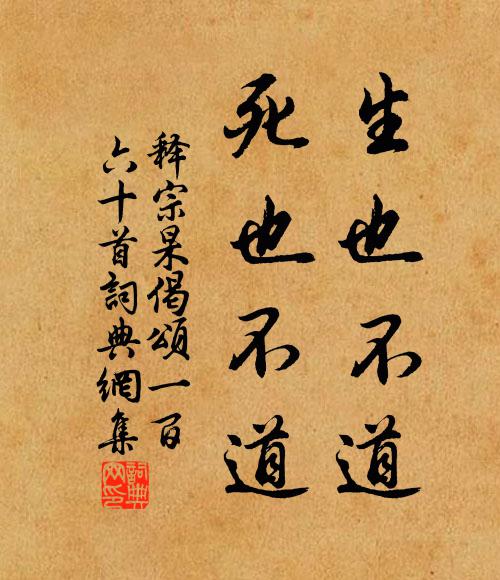 生也不道
死也不道
释宗杲偈頌一百
六十首詞典網集
詞典
网印